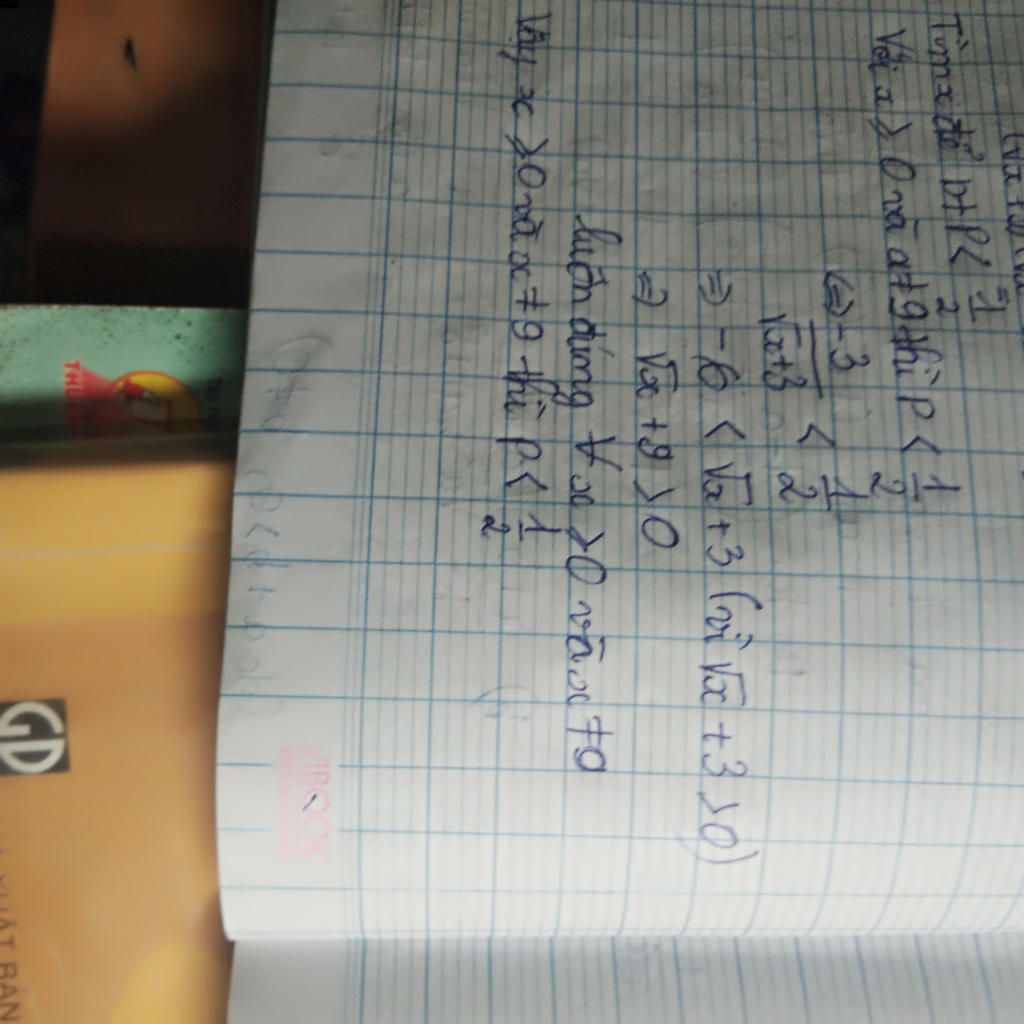 (√x+3)(√x
Tìm x để bt P < -1/2
Với x ⩾ 0 và x ≠ 9 thì P < 1/2
(=) -3/√x+3 < 1/2
=) -6 < √x + 3 (vì √x + 3 > 0)
=) √x + 9 > 0
luôn đúng ∀ x ⩾ 0 và x ≠ 9
Vậy x ⩾ 0 và x ≠ 9 thì P < 1/2
VIBOOK
GD
XUẤT BẢN